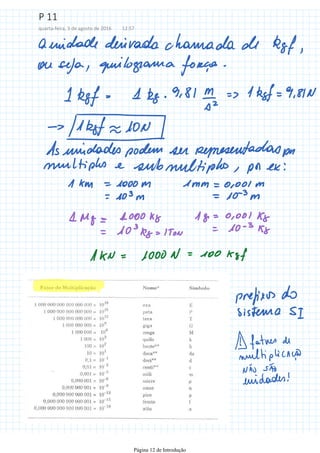 P 11
quarta-feira, 3 de agosto de 2016 12:57
A unidade derivada chamada de kgf,
ou seja, quilograma força.
1 kgf = 1 kg . 9,81 m/s² => 1 kgf = 9,81 N
→ 1 kgf ≈ 10N
As unidades podem ser representadas por
multiplos e submultiplos, por ex:
1 km = 1000 m 1mm = 0,001 m
= 10³ m = 10⁻³ m
1 Mg = 1.000 kg 1 g = 0,001 kg
= 10³ kg = 1 Ton = 10⁻³ kg
1 kN = 1000 N = 100 kgf
Fator de Multiplicação Nome* Símbolo
1 000 000 000 000 000 000 = 10¹⁸ exa E
1 000 000 000 000 000 = 10¹⁵ peta P
1 000 000 000 000 = 10¹² tera T
1 000 000 000 = 10⁹ giga G
1 000 000 = 10⁶ mega M
1 000 = 10³ quilo k
100 = 10² hecto** h
10 = 10¹ deca** da
0,1 = 10⁻¹ deci** d
0,01 = 10⁻² centi** c
0,001 = 10⁻³ mili m
0,000 001 = 10⁻⁶ micro μ
0,000 000 001 = 10⁻⁹ nano n
0,000 000 000 001 = 10⁻¹² pico p
0,000 000 000 000 001 = 10⁻¹⁵ femto f
0,000 000 000 000 000 001 = 10⁻¹⁸ atto a
prefixos do
sistema SI
⚠ fatores de
multiplicação
não são
unidades!
Página 12 de Introdução